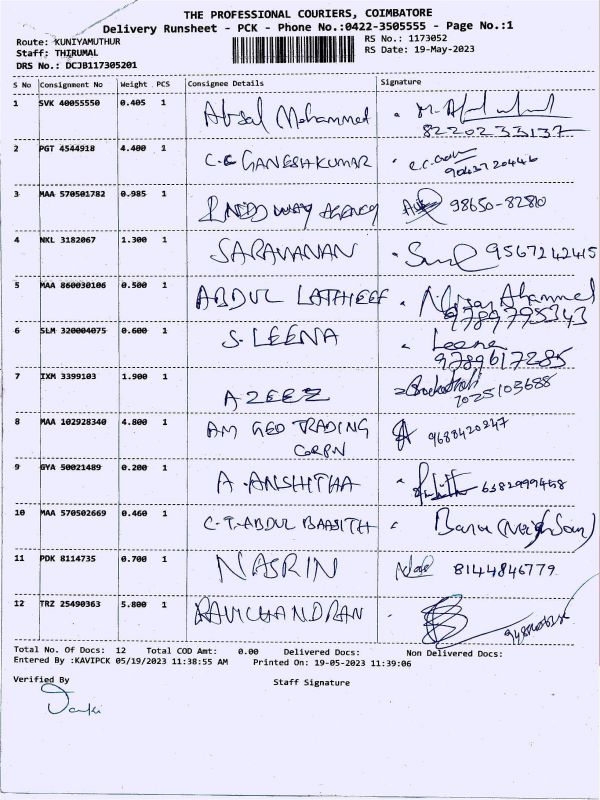 THE PROFESSIONAL COURIERS, COIMBATORE
Delivery Runsheet - PCK - Phone No.:0422-3505555 - Page No.:1
Route: KUNIYAMUTHUR
RS No.: 1173052
Staff: THIRUMAL
RS Date: 19-May-2023
DRS No.: DCJB117305201
S No Consignment No Weight PCS Consignee Details Signature
1 SVK 40055550 0.405 1 Absal Mohammed
8220233137
2 PGT 4544918 4.400 1 C.C GANESHKUMAR
9043720446
3 MAA 570501782 0.985 1 AGENCY 98650-82810
4 NKL 3182067 1.300 1 SARAVANAN 9567242415
5 MAA 860030106 0.500 1 ABDUL LATHIEEF
9789795343
6 SLM 320004075 0.600 1 S. LEENA Leena
9789617285
7 IXM 3399103 1.900 1 AZEEZ
7025103688
8 MAA 102928340 4.800 1 AM GEO TRADING 9688420247
CORPN
9 GYA 50021489 0.200 1 A. ANSHITHA 6382999458
10 MAA 570502669 0.460 1 C.T. ABDUL BAASITH
11 PDK 8114735 0.700 1 NASRIN 8144846779
12 TRZ 25490363 5.800 1 RAVICHANDRAN
Total No. Of Docs: 12 Total COD Amt: 0.00 Delivered Docs: Non Delivered Docs:
Entered By :KAVIPCK 05/19/2023 11:38:55 AM Printed On: 19-05-2023 11:39:06
Verified By Staff Signature